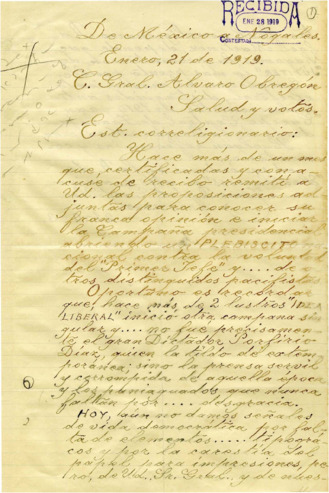 RECIBIDA
ENE 28 1919
CONTESTADA
1
De México a Nogales.
Enero, 21 de 1919.
C. Gral. Alvaro Obregón
Salud y votos.
Est. correligionario:
Hace más de un mes
que, certificadas y con a-
cuse de recibo remití a
Ud. las proposiciones ad-
juntas para conocer su
franca opinión e iniciar
la Campaña presidencial
abriendo un PLEBISCITO na-
cional contra la voluntad
del "Primer Jefe" y .... de o-
tros distinguidos pacifistas
Oportuno es recordar
que, hace más de 2 lustros "IDEA
LIBERAL" inició otra campaña sin-
gular y .... no fue precisamen-
te el gran Dictador Porfirio
Díaz, quien la tildó de extem-
poránea; sino la prensa servil
y corrompida de aquella época
y los que nunca
faltan por .... desgracia.
HOY, aún no damos señales
de vida democrática por fal-
ta de elementos....
y por la carestía del
papel para impresiones, pe-
ro, de Ud. Sr. Gral. y de nues-